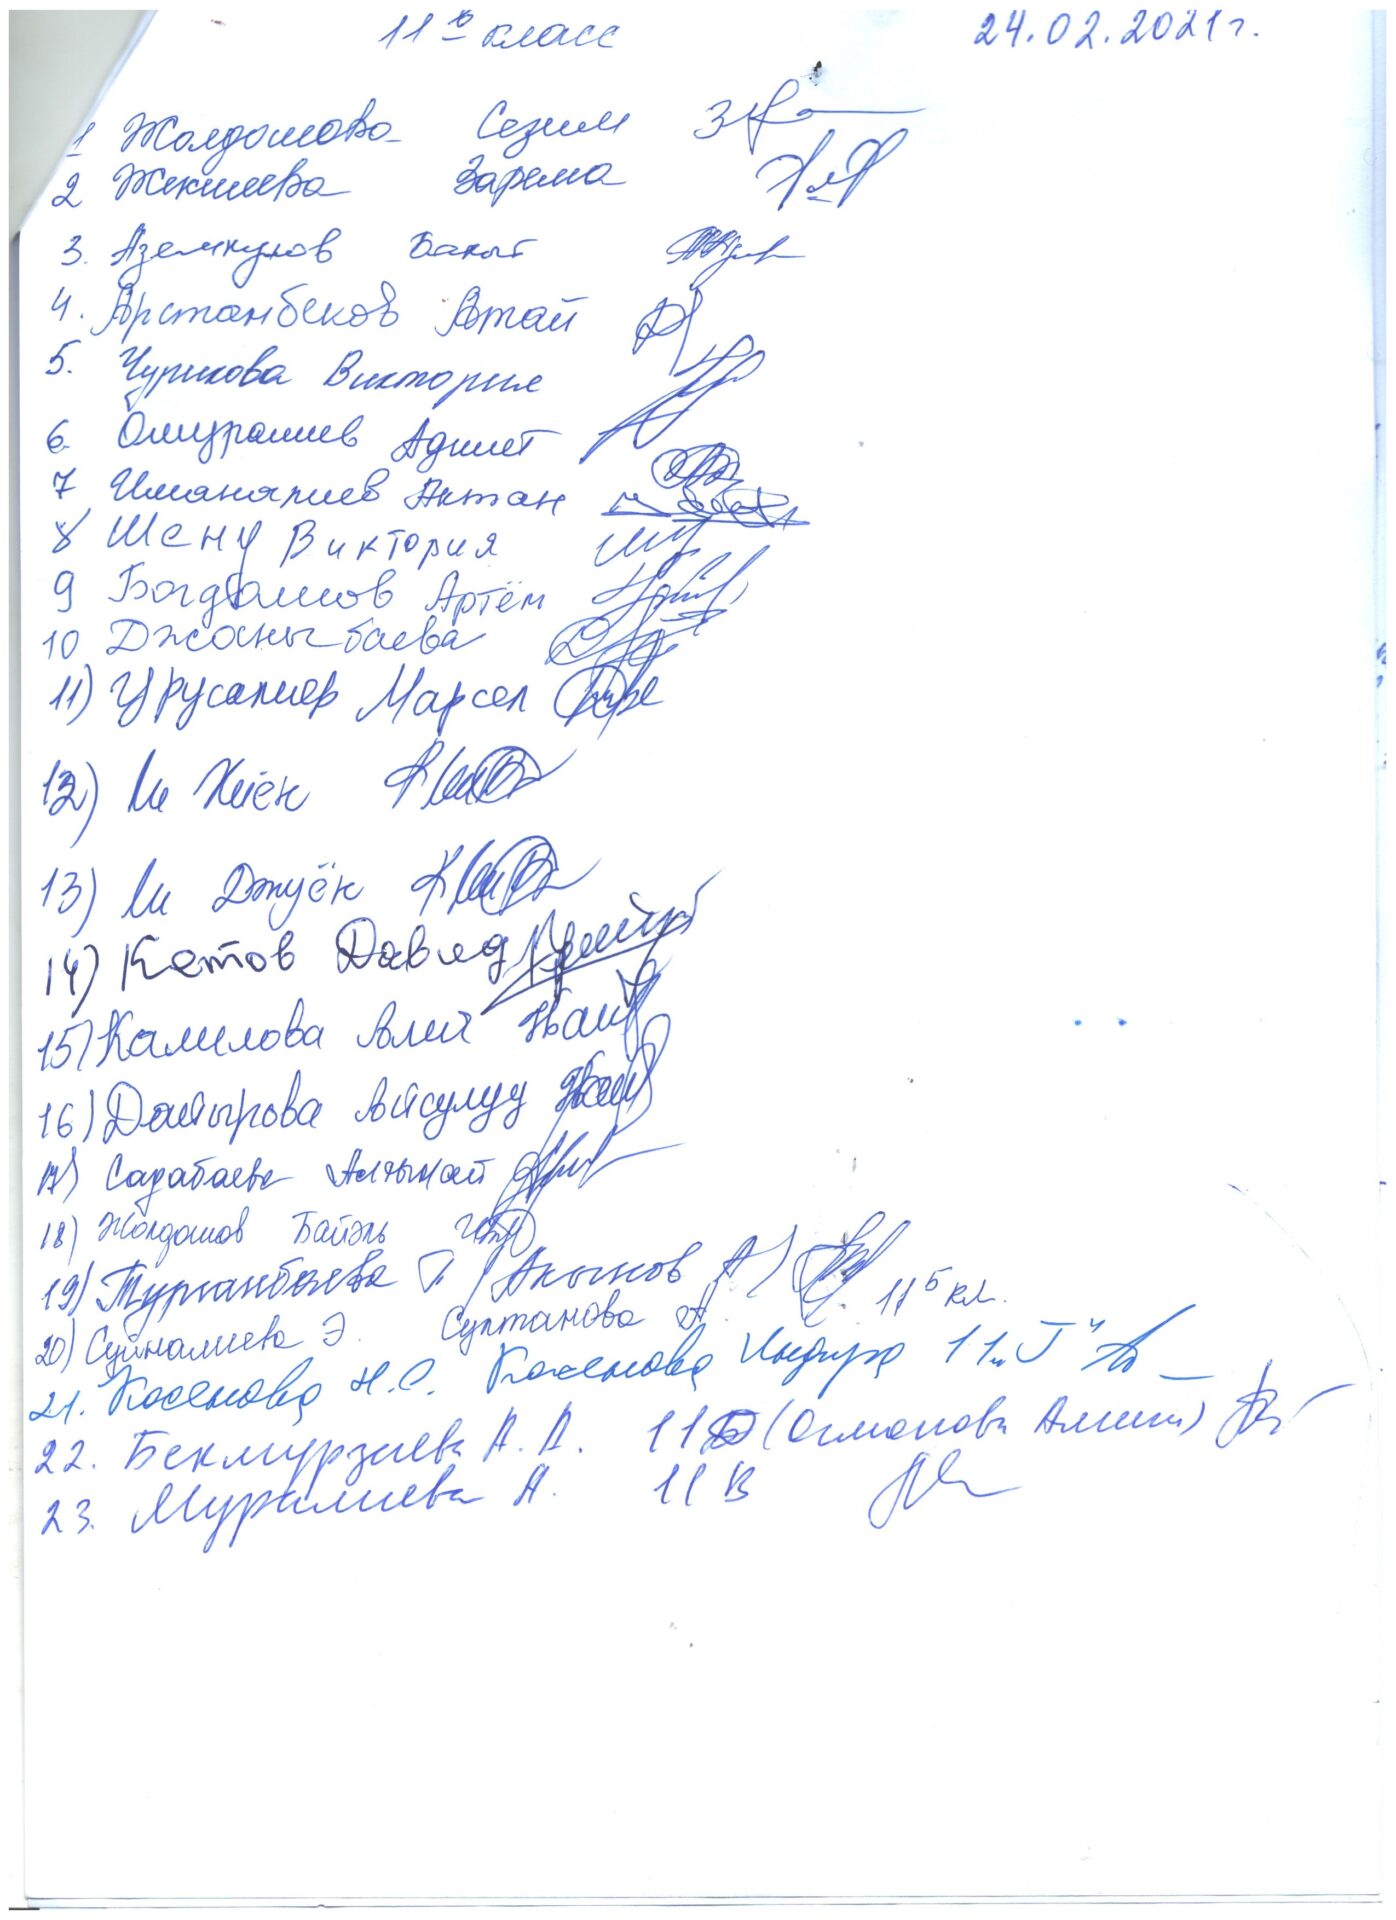 11 в класс 24.02.2021г.
1 Жолдошова Сезим
2 Жекшеева Зарема
3. Аземкулов Бакыт
4. Арстанбеков Атай
5. Чурикова Виктория
6. Омуралиев Адилет
7 Иманалиев Актан
8 Шену Виктория
9 Богдашов Артём
10 Джаныбаева
11) Урусалиев Марсел
12) Ли Хиён
13) Ли Джуён
14) Кетов Давид
15) Калилова Алия
16) Доитырова Айсулуу
17) Садабаева Алтынай
18) Жолдошов Байэль
19) Турганбаева Г / Акынов А) 11 Б кл.
20) Суйналиева Э. Султанова А.
21. Косенова Н.С. Косенова Индира 11 "Г"
22. Бекмурзаева А. А. 11 (Осмонова Амина)
23. Муралиева А. 11 В